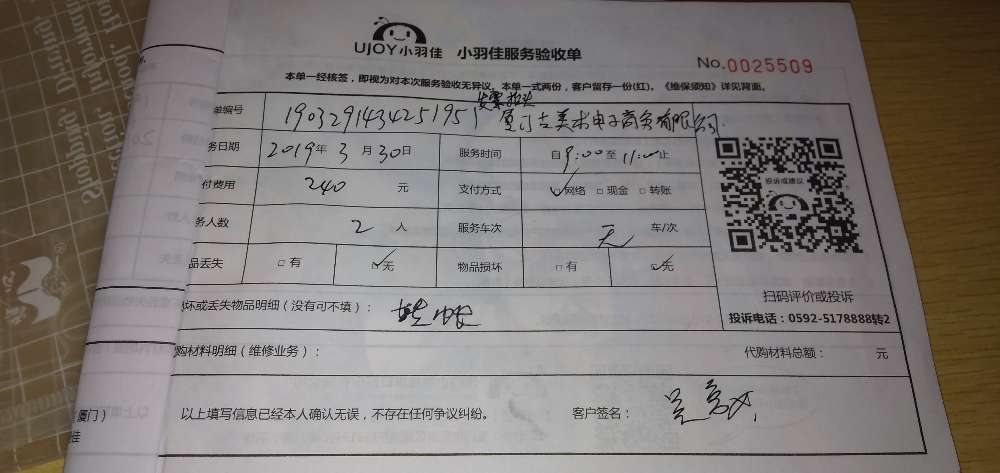 UJOY小羽佳 小羽佳服务验收单
No.0025509
本单一经核签，即视为对本次服务验收无异议。本单一式两份，客户留存一份(红)。《维保须知》详见背面。
发票抬头
单编号 190329143425195 厦门古美术电子商务有限公司
务日期 2019年 3月30日 服务时间 自9:00至11:00止
付费用 240 元 支付方式 网络 现金 转账
务人数 2 人 服务车次 无 车/次
品丢失 有 无 物品损坏 有 无
投诉或建议
扫码评价或投诉
投诉电话：0592-5178888转2
坏或丢失物品明细（没有可不填）：
购材料明细（维修业务）： 代购材料总额： 元
以上填写信息已经本人确认无误，不存在任何争议纠纷。 客户签名：
厦门）
佳